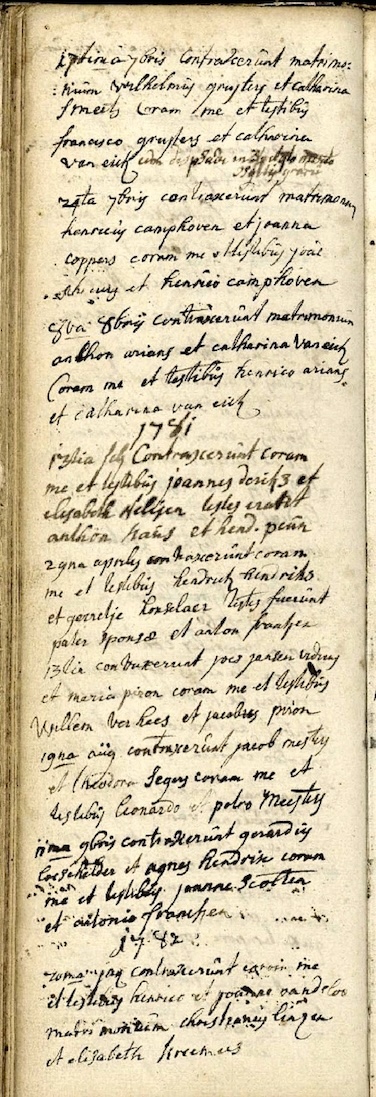 17tima 7bris contraxerunt matrimo-
nium wilhelmus gruyters et catharina
Smeets coram me et testibus
francisco gruyters et catharina
van eick cum
24ta 7bris contraxerunt matrimonium
henricus camphoven et joanna
coppers coram me et testibus
et henrico camphoven
8va 8bris contraxerunt matrimonium
anthon arians et catharina van eick
Coram me et testibus henrico arians
et catharina van eick
1781
13tia feb Contraxerunt coram
me et testibus joannes et
elisabeth testes erant
anthon et hend.
29na aprilis contraxerunt coram
me et testibus hendrick hendriks
et testes fuerunt
pater sponsæ et anton frantzen
13tia contraxerunt joes jansen viduus
et maria piron coram me et testibus
Willem verhees et jacobus piron
19na aug contraxerunt jacob mestrs
et theodora Segers coram me et
testibus leonardo et petro Meesters
11ma 9bris contraxerunt gerardus
et agnes hendrix coram
me et testibus joanne Scolten
et antonio frantzen
1782
contraxerunt coram me
et testibus henrico et joanne vandeloo
matrimonium christianus lingen
et elisabeth kreemers